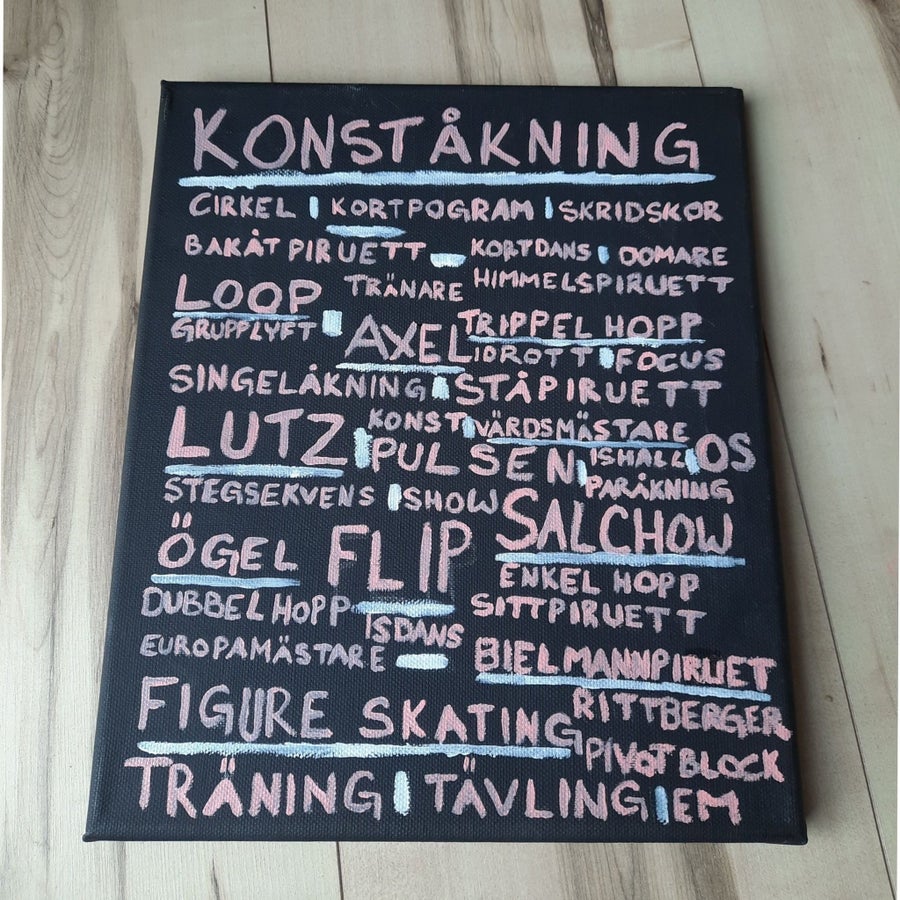 KONSTÅKNING
CIRKEL KORTPOGRAM SKRIDSKOR
BAKÅT PIRUETT KORTDANS DOMARE
LOOP TRÄNARE HIMMELSPIRUETT
GRUPPLYFT AXEL TRIPPEL HOPP
IDROTT FOCUS
SINGELÅKNING STÅPIRUETT
LUTZ KONST VÄRDSMÄSTARE
PULSEN ISHALL OS
STEGSEKVENS SHOW PARÅKNING
ÖGEL FLIP SALCHOW
ENKEL HOPP
DUBBEL HOPP SITTPIRUETT
ISDANS
EUROPAMÄSTARE BIELMANNPIRUET
FIGURE SKATING RITTBERGER
PIVOT BLOCK
TRÄNING TÄVLING EM